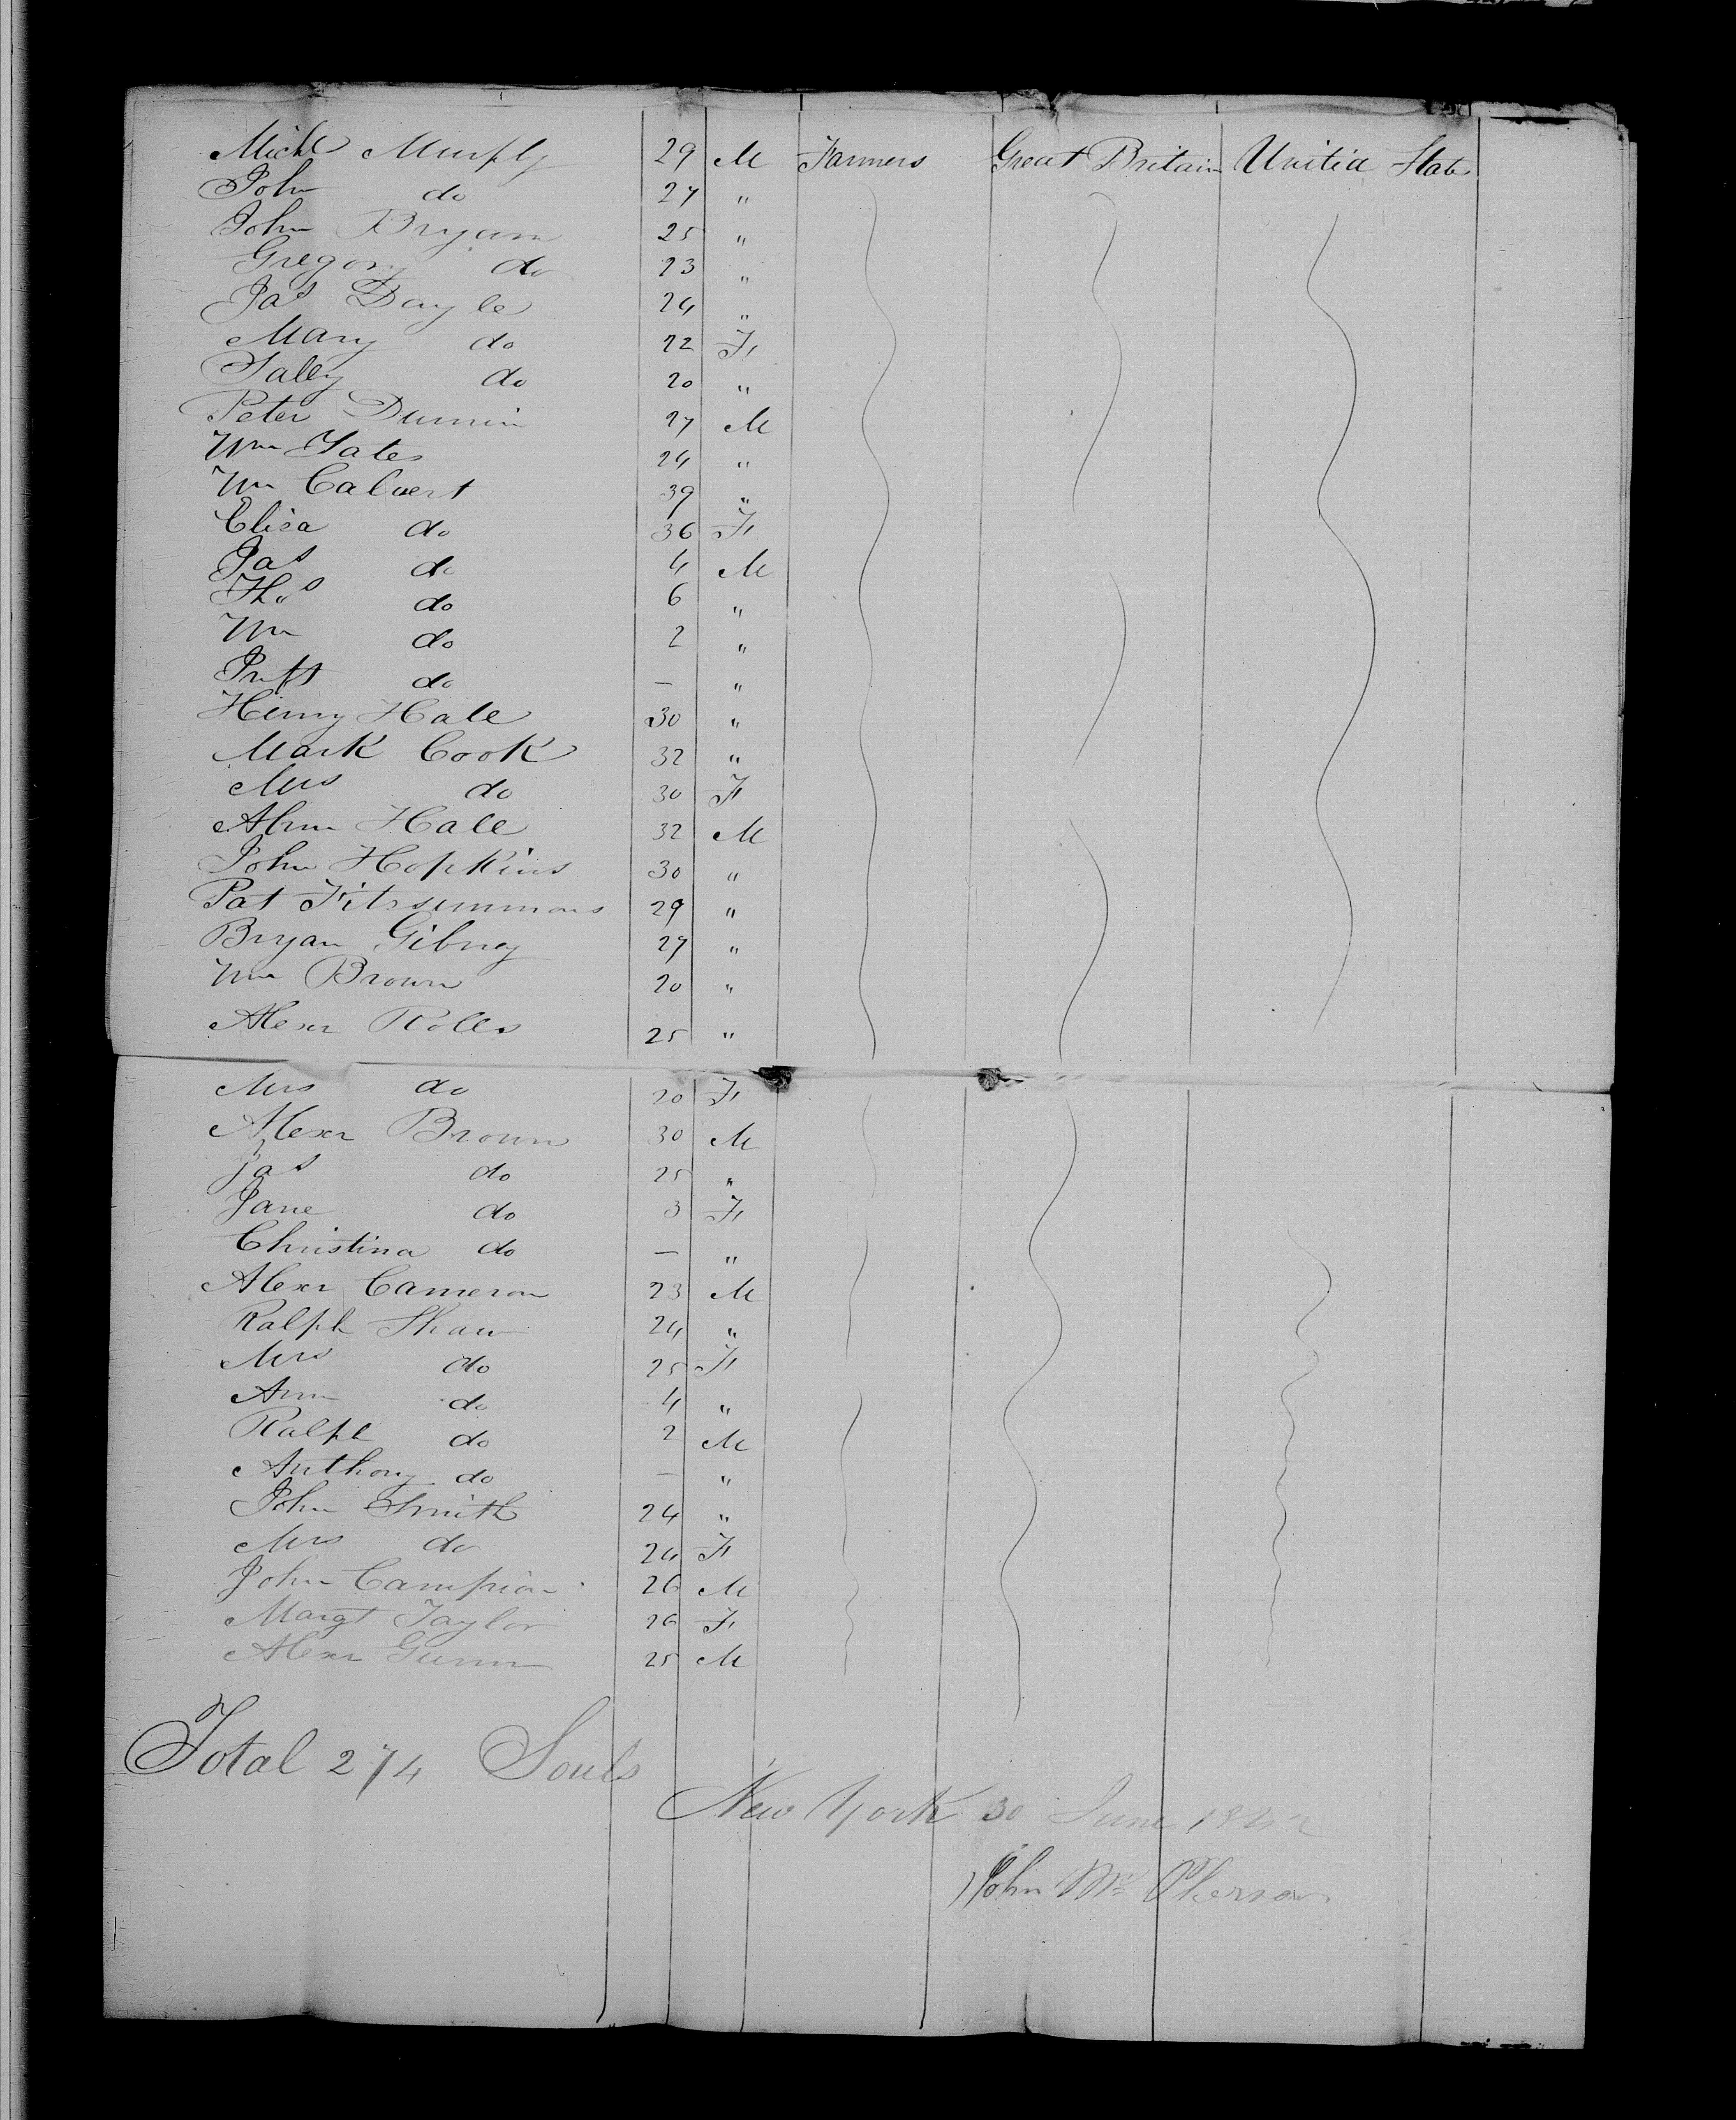 Michl Murphy 29 M Farmers Great Britain United State
John do 27 "
John Bryan 25 "
Gregory do 23 "
Jas Doyle 24 "
Mary do 22 F
Sally do 20 "
Peter Dunnin 27 M
Wm Yates 24 "
Wm Calvert 39 "
Elisa do 36 F
Jas do 4 M
Thos do 6 "
Wm do 2 "
do — "
Henry Hall 30 "
Mark Cook 32 "
Mrs do 30 F
Abm Hall 32 M
John Hopkins 30 "
Pat Fitzsimmons 29 "
Bryan Gibney 27 "
Wm Brown 20 "
Alexr Rolls 25 "
Mrs do 20 F
Alexr Brown 30 M
Jas do 25 "
Jane do 3 F
Christina do — "
Alexr Cameron 23 M
Ralph Shaw 24 "
Mrs do 25 F
Ann do 4 "
Ralph do 2 M
Anthony do — "
John Smith 24 "
Mrs do 24 F
John Campion 26 M
Margt Taylor 26 F
Alexr Gunn 25 M
Total 274 Souls
New York 30 June 1842
John Mc Pherson